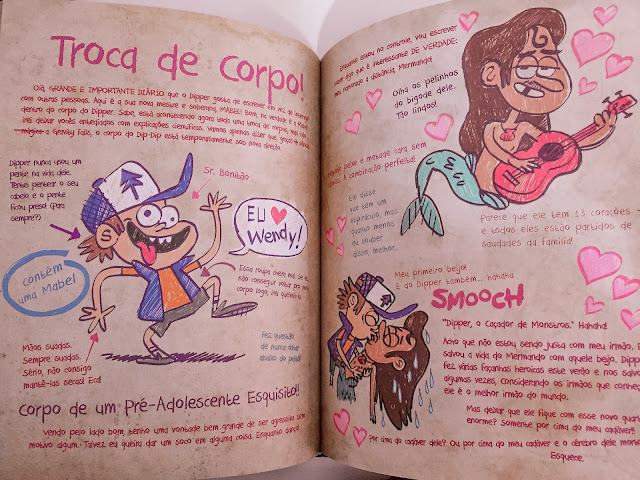 Troca de corpo!
Olá, GRANDE E IMPORTANTE DIÁRIO que o Dipper gosta de escrever em vez de interagir
com outras pessoas. Aqui é a sua nova mestre e soberana, MABEL! Bom, na verdade é a Mabel
dentro do corpo do Dipper. Sabe, está acontecendo agora toda uma troca de corpos, mas não
irei deixar vocês entediados com explicações científicas. Vamos apenas dizer que, graças à
mágica a Gravity Falls, o corpo do Dip-Dip está temporariamente sob nova direção.
Dipper nunca usou um
pente na vida dele.
Tentei pentear o seu
cabelo e o pente
ficou preso! (Para
sempre?)
Sr. Bonitão
EU
Wendy!
contém
uma Mabel
Essa roupa cheira mal. Se
não conseguir voltar pro meu
corpo logo, irei queimá-la
Mãos suadas.
Sempre suadas.
Sério, não consigo
mantê-las secas! Eca!
Fiz questão
de nunca olhar
abaixo do peito!
Corpo de um Pré-Adolescente Esquisito!!
Vendo pelo lado bom, tenho uma vontade bem grande de ser agressiva sem
motivo algum. Talvez eu queira dar um soco em alguma coisa. Enquanto
Enquanto estou no controle, vou escrever
algo que é interessante DE VERDADE:
meu namorado a distância, Mermando!
Olha os pelinhos
do bigode dele.
Tão lindos!
peixe e metade cara sem
A combinação perfeita!
Ele disse
que tem um
espiráculo, mas
quanto menos
eu souber
disso, melhor.
Parece que ele tem 13 corações
e todos eles estão partidos de
saudades da família!
Meu primeiro beijo!
E do Dipper também... hahaha
SMOOCH
"Dipper, o Caçador de Monstros." Hahaha!
Acho que não estou sendo justa com meu irmão. E
salvou a vida do Mermando com aquele beijo. Dipper
fez várias façanhas heroicas este verão e nos salvou
algumas vezes. Considerando os irmãos que conheço
ele é o melhor irmão do mundo.
Mas deixar que ele fique com esse novo quarto
enorme? Somente por cima do meu cadáver!!
Por cima do cadáver dele? Ou por cima do meu cadáver e o cérebro dele
Esquece.